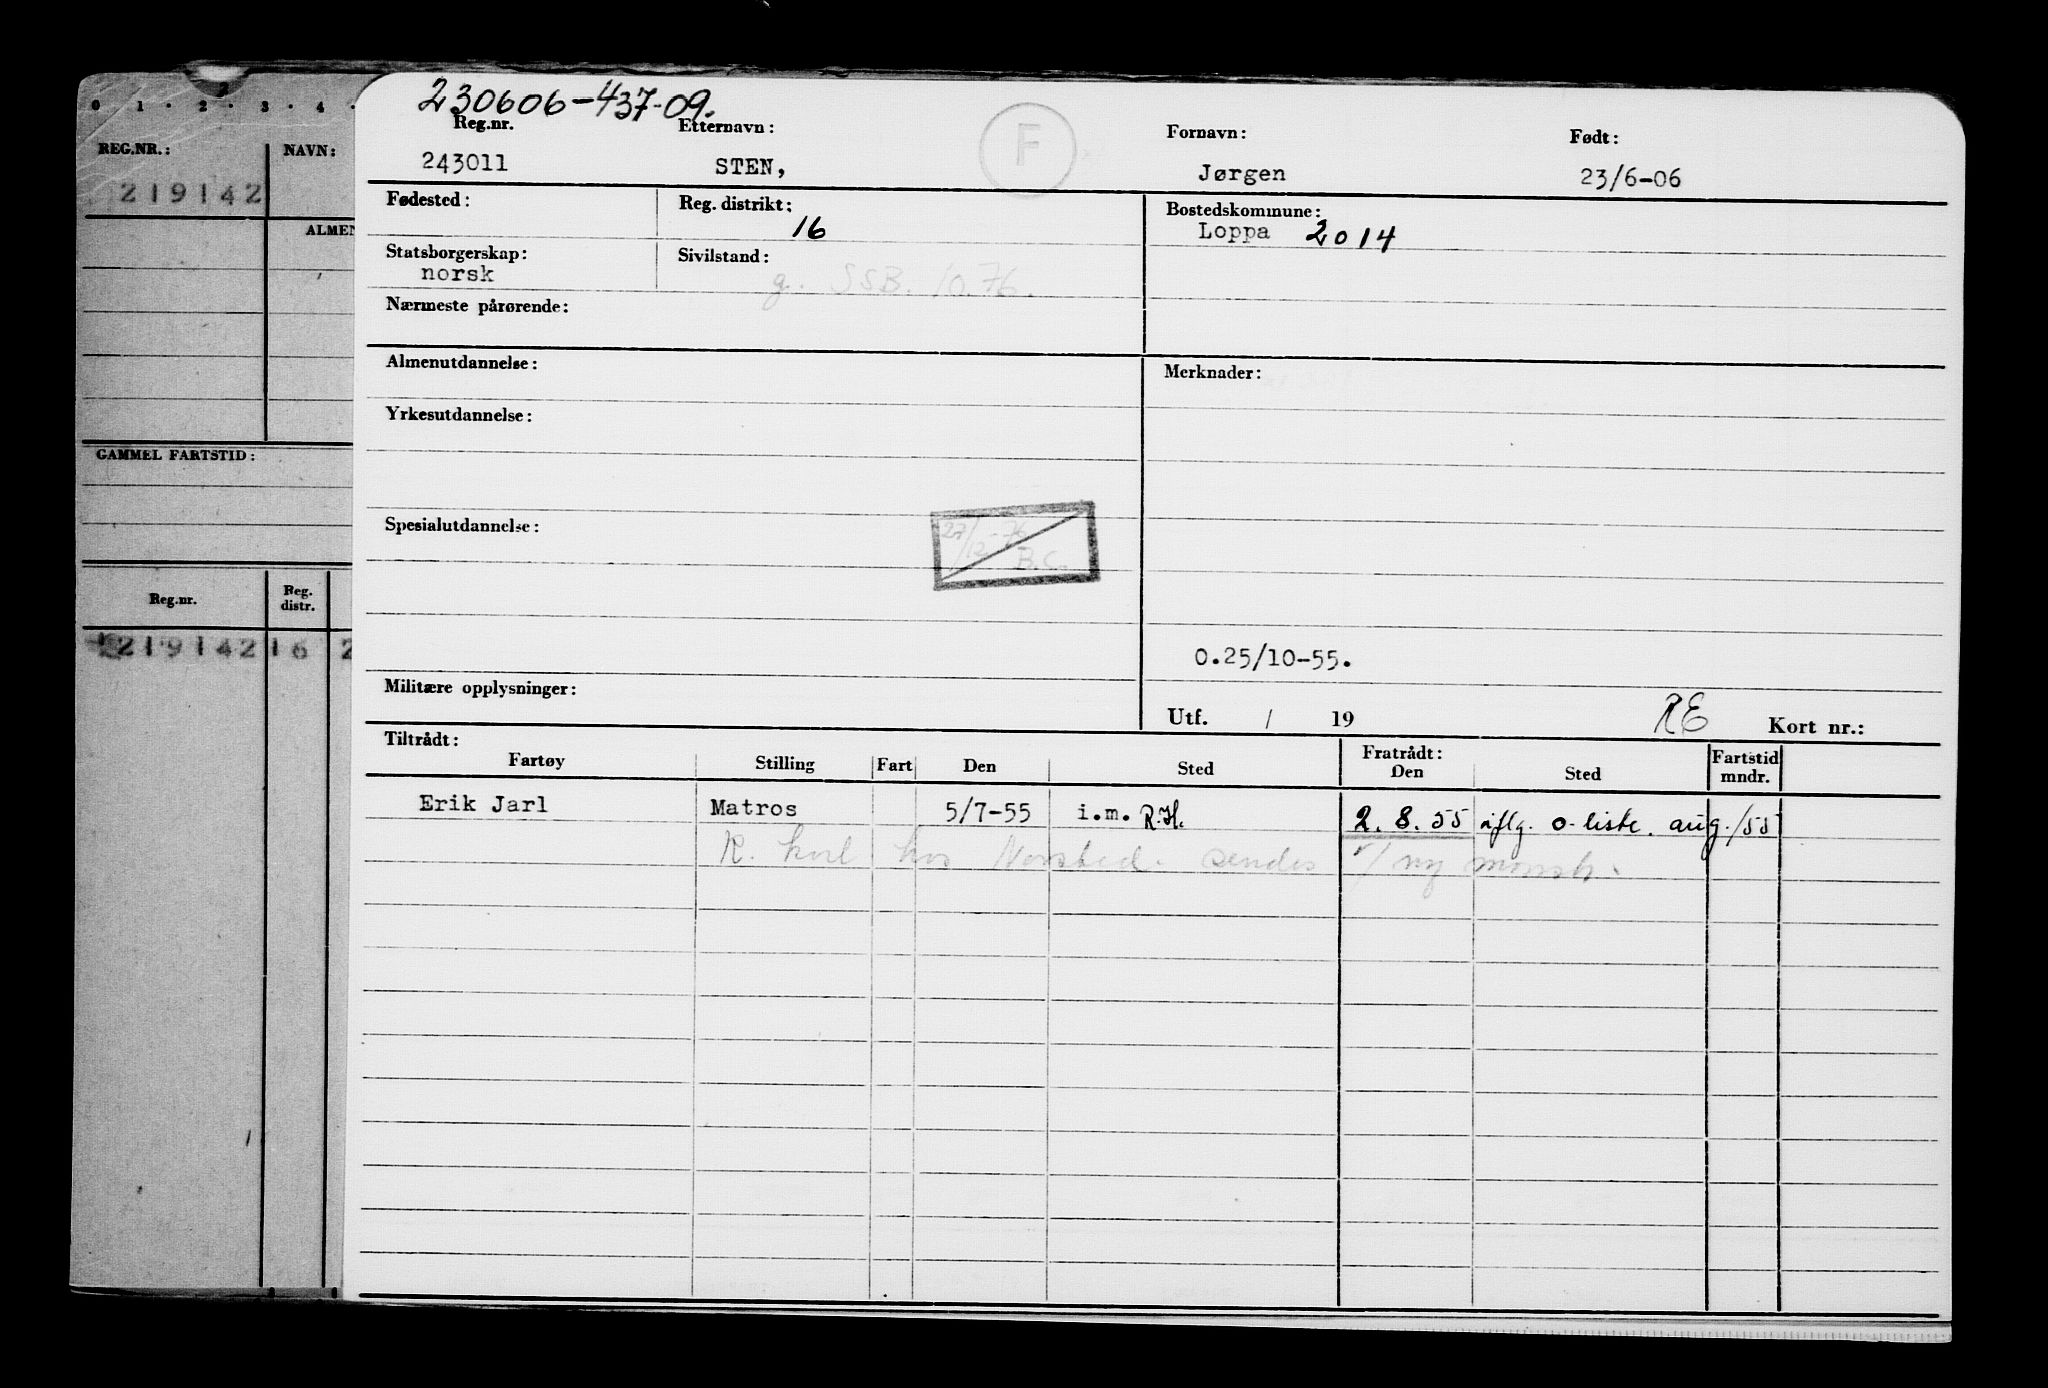 0 1 . 2 . 3 . 4 .
REG.NR.: NAVN:
219142
ALMEN
GAMMEL FARTSTID:
Reg.nr. Reg. distr.
219142 16 2
230606-437-09.
Reg.nr. Etternavn: Fornavn: Født:
243011 STEN, F Jørgen 23/6-06
Fødested: Reg. distrikt: Bostedskommune:
16 Loppa 2014
Statsborgerskap: Sivilstand:
norsk g. SSB. 10.76.
Nærmeste pårørende:
Almenutdannelse: Merknader:
Yrkesutdannelse:
Spesialutdannelse:
27/12-76 B.C.
0.25/10-55.
Militære opplysninger:
Utf. / 19 RE Kort nr.:
Tiltrådt: Fratrådt: Fartstid
Fartøy Stilling Fart Den Sted Den Sted mndr.
Erik Jarl Matros 5/7-55 i.m. R.H. 2.8.55 iflg. o-liste. aug./55
K. kort hos Norsted. sendes v/ ny mønstr.